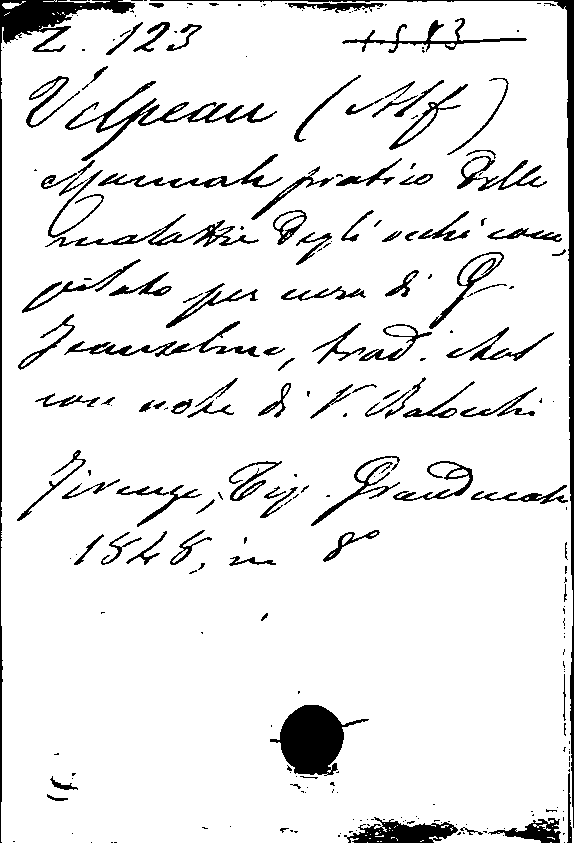 Z. 123 1583
Velpeau (Alf)
Manuale pratico delle
malattie degli occhi com,
pilato per cura di G.
Jeanselme, trad. ital
con note di V. Balocchi
Firenze, Tip. Granducale
1848, in 8°